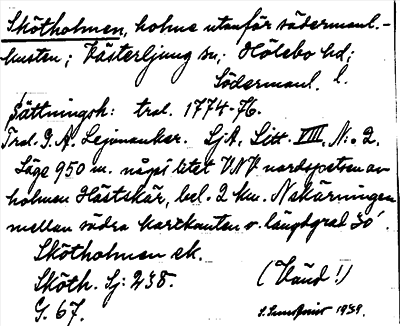 Skötholmen, holme utanför södermanl.-
kusten; Västerljung sn; Hölebo hd;
Södermanl. l.
Sättningsk: trol. 1774-76.
Trol. G. A. Leijonanker. SjA, Litt. VIII, N:o 2.
Läge 950 m. någ. litet VNV nordspetsen av
holmen Hästskär, bel. 2 km. N skärningen
mellan södra kartkanten o. längdgrad 30'.
Skötholmen ek.
Sköth. Sj: 238.
G. 67.
(Vänd!)
1939.